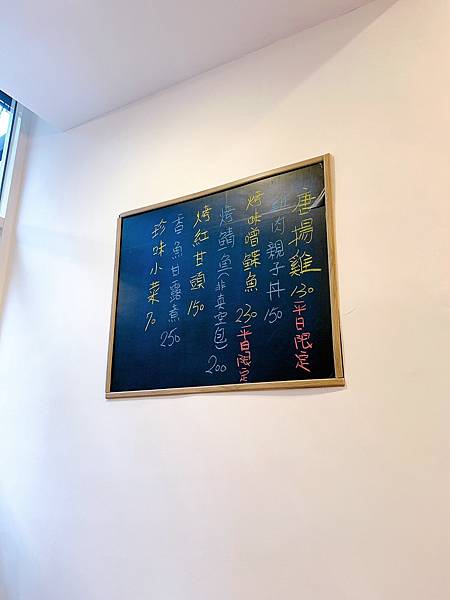 唐揚雞 130 平日限定
雞肉親子丼 150
烤味噌鰈魚 230 平日限定
烤鯖魚(非真空包) 200
烤紅甘頭 150
香魚甘露煮 250
珍味小菜 70